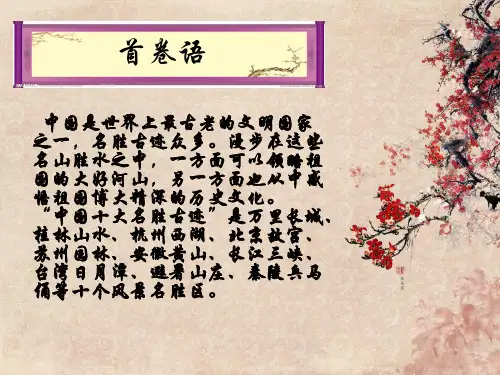 首卷语
中国是世界上最古老的文明国家
之一，名胜古迹众多。漫步在这些
名山胜水之中，一方面可以领略祖
国的大好河山，另一方面也从中感
悟祖国博大精深的历史文化。
“中国十大名胜古迹”是万里长城、
桂林山水、杭州西湖、北京故宫、
苏州园林、安徽黄山、长江三峡、
台湾日月潭、避暑山庄、秦陵兵马
俑等十个风景名胜区。